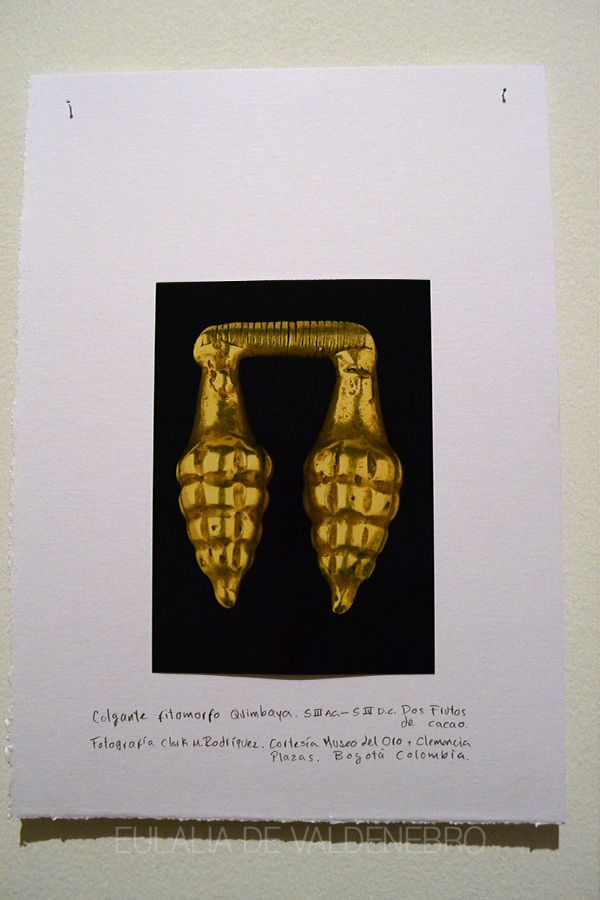 Colgante fitomorfo Quimbaya. S III AC.– S IV D.C. Dos Frutos
de cacao.
Fotografía Clark M. Rodríguez. Cortesía Museo del Oro y Clemencia
Plazas. Bogotá Colombia.
EULALIA DE VALDENEBRO